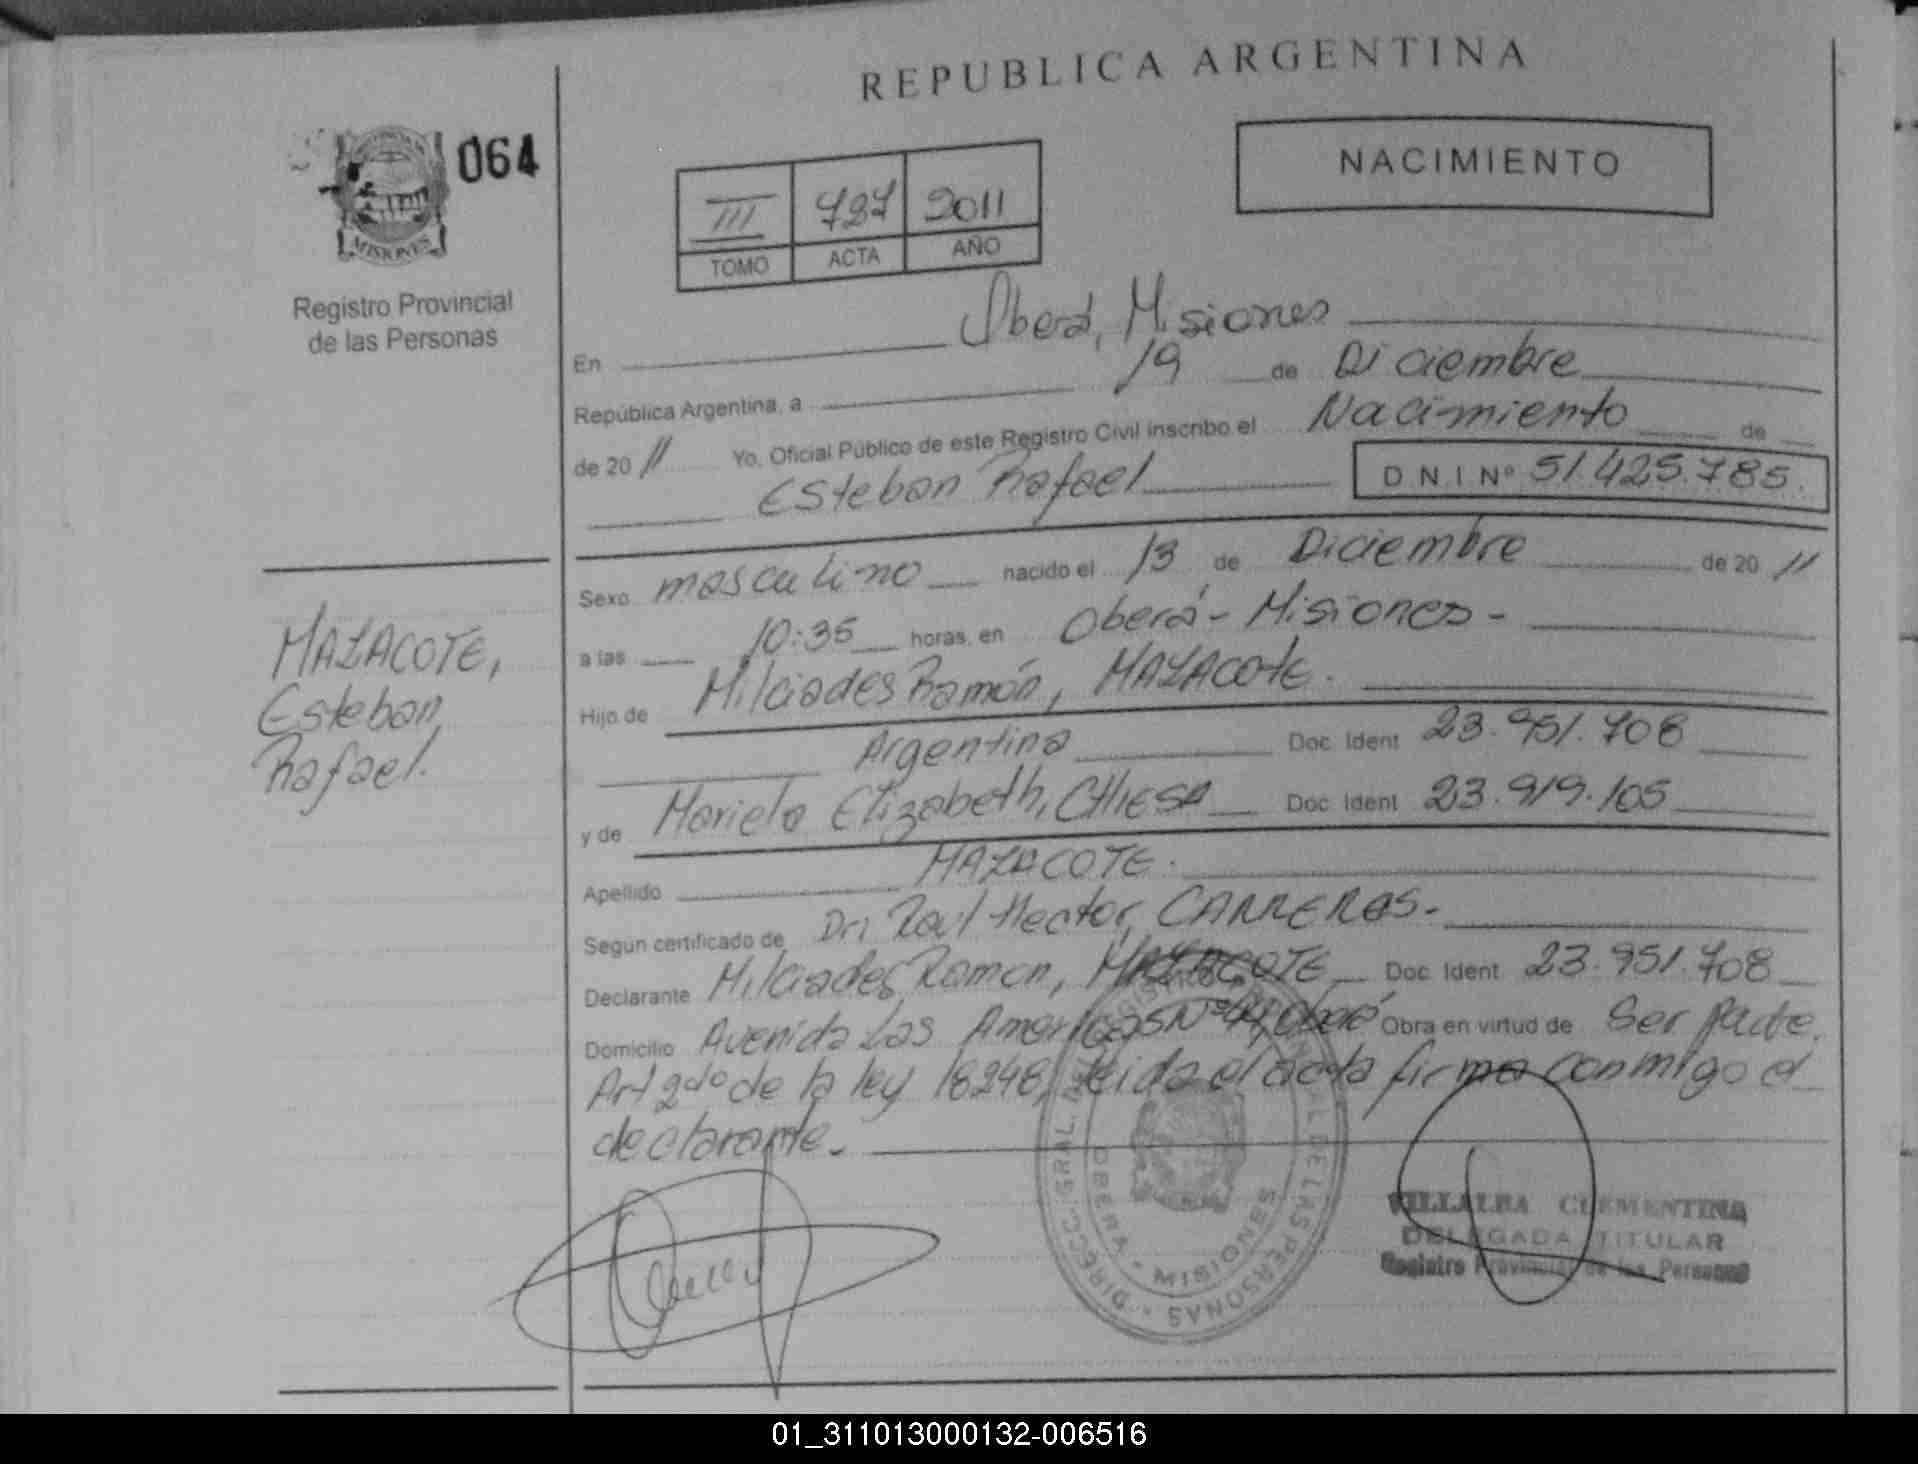 REPUBLICA ARGENTINA
064
NACIMIENTO
III 727 2011
TOMO ACTA AÑO
MISIONES
Registro Provincial
de las Personas
En Oberá, Misiones
República Argentina, a 19 de Diciembre
de 2011 Yo, Oficial Público de este Registro Civil inscribo el Nacimiento de
Esteban Rafael DNI Nº 51.425.785.
Sexo masculino nacido el 13 de Diciembre de 2011
a las 10:35 horas, en Oberá - Misiones -
Hijo de Milciades Ramón, MAZACOTE.
Argentina Doc. Ident 23.951.708
y de Mariela Elizabeth, CHIESA Doc. Ident 23.919.105
Apellido MAZACOTE.
Según certificado de Dr. Raúl Hector, CARRERAS.-
Declarante Milciades Ramon, MAZACOTE Doc. Ident 23.951.708
Domicilio Avenida Las Americas Nº Oberá Obra en virtud de Ser Padre.
Art 2do de la ley 18248, leida el acta firma conmigo el
declarante.-
MAZACOTE,
Esteban
Rafael.
DIRECC. GRAL. DEL REGISTRO PROVINCIAL DE LAS PERSONAS
OBERA - MISIONES
VILLALBA CLEMENTINA
DELEGADA TITULAR
Registro Provincial de las Personas
01_311013000132-006516